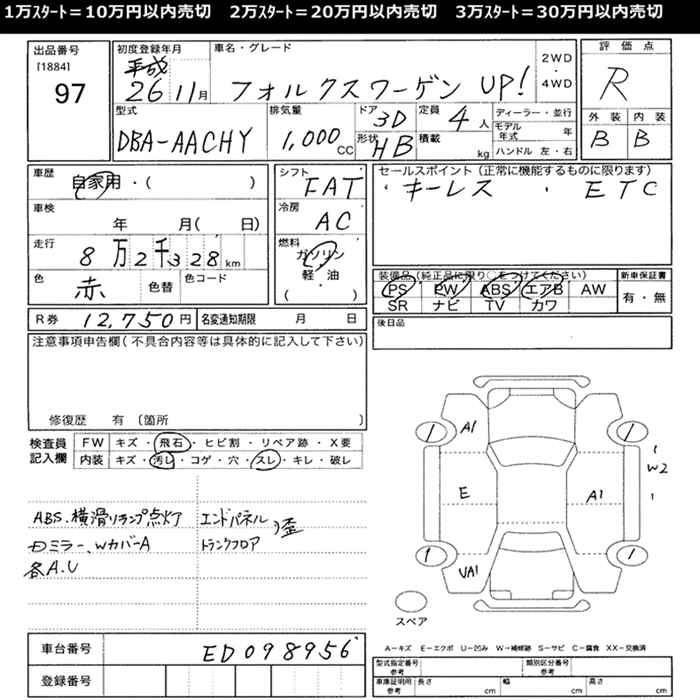 1万ｽﾀｰﾄ＝10万円以内売切　2万ｽﾀｰﾄ＝20万円以内売切　3万ｽﾀｰﾄ＝30万円以内売切
出品番号
[1884]
97
初度登録年月
平成
26 11月
車名・グレード
フォルクスワーゲン UP!
2WD
・
4WD
評価点
R
外装 内装
B B
型式
DBA-AACHY
排気量
1,000 CC
ドア
3D
形状
HB
定員
4人
積載
kg
ディーラー・並行
モデル年式 年
ハンドル 左・右
車歴
自家用・( )
車検
年 月( 日)
走行
8万2千328km
色
赤
色替
色コード
シフト
FAT
冷房
AC
燃料
ガソリン
軽・油
( )
セールスポイント(正常に機能するものに限ります)
・キーレス ・ETC
装備品(純正品に限り○をつけてください)
PS PW ABS エアB AW
SR ナビ TV カワ
新車保証書
有・無
R券 12,750円
名変通知期限 月 日
後日品
注意事項申告欄(不具合内容等は具体的に記入して下さい)
修復歴 有 〔箇所 〕
検査員
記入欄
FW キズ・飛石・ヒビ割・リペア跡・X要
内装 キズ・汚レ・コゲ・穴・スレ・キレ・破レ
ABS.横滑りランプ点灯
Dミラー、WカバーA
各A.U
エンドパネル
トランクフロア
歪
A1
E
A1
W2
UA1
スペア
A－キズ E－エクボ U－凹み W－補修跡 S－サビ C－腐食 XX－交換済
車台番号 ED098956
登録番号
型式指定番号
参考
類別区分番号
参考
車庫証明用
参考
長さ cm
幅 cm
高さ cm